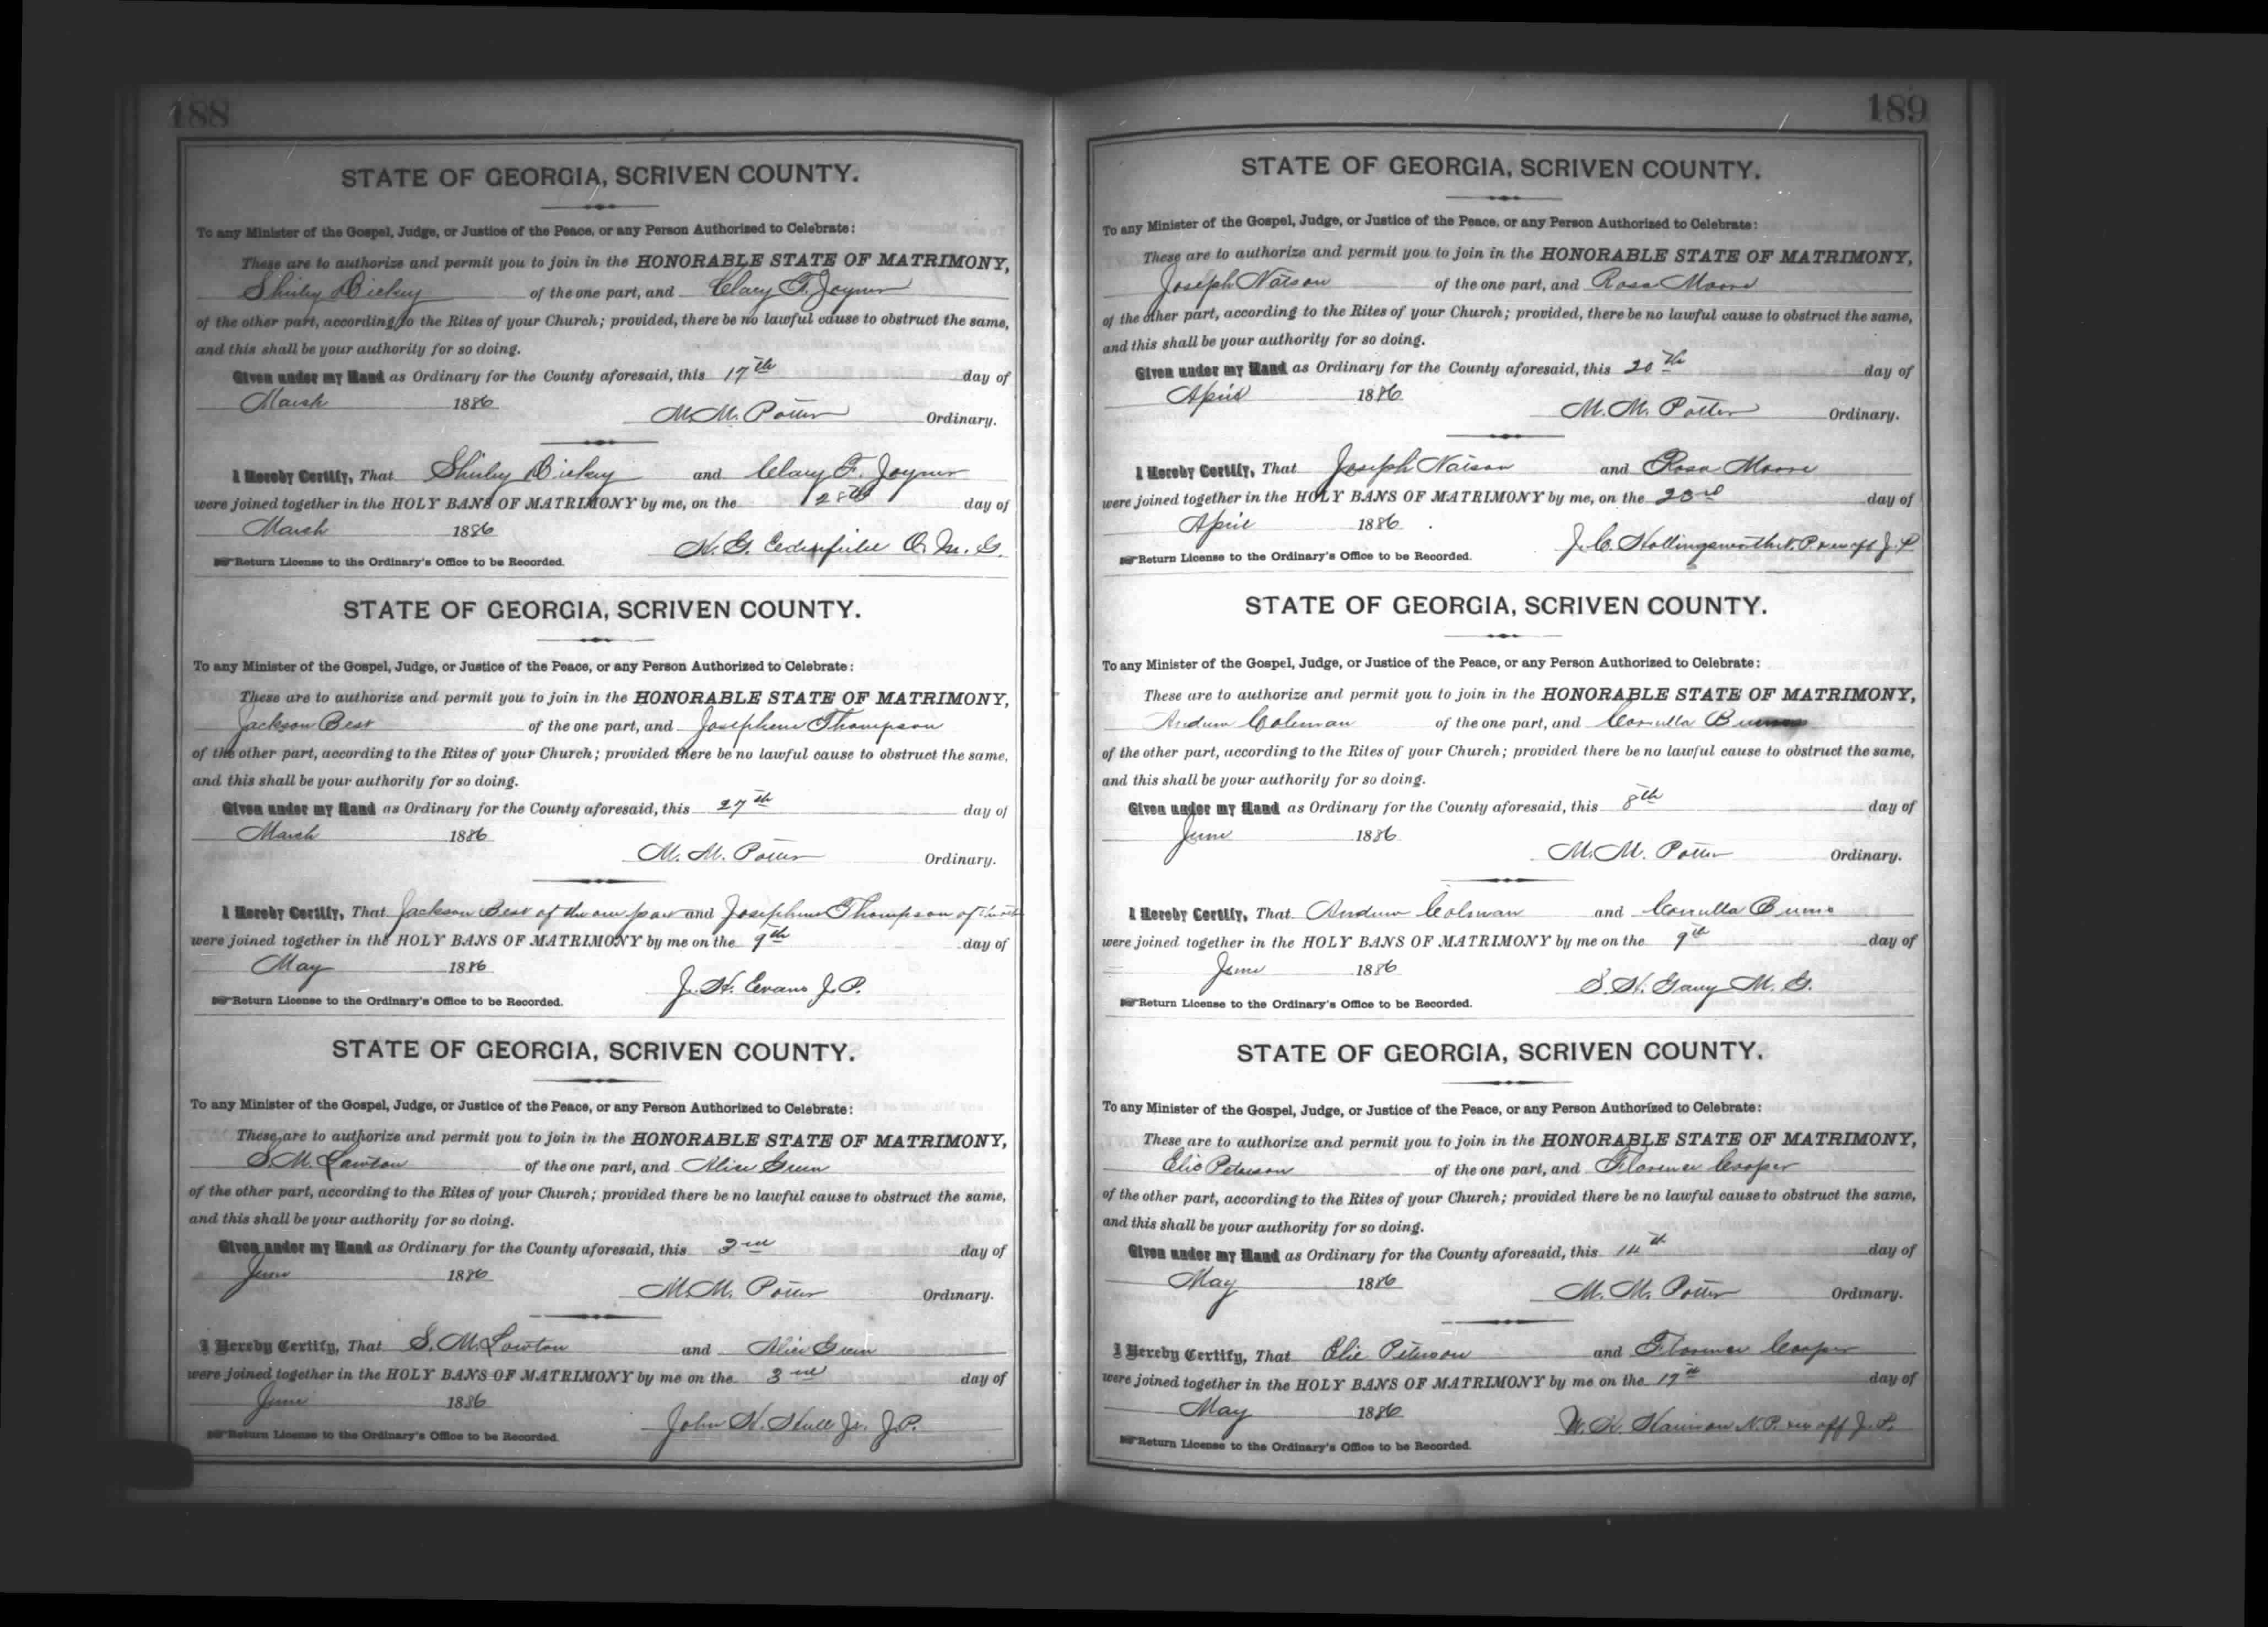 188
STATE OF GEORGIA, SCRIVEN COUNTY.
To any Minister of the Gospel, Judge, or Justice of the Peace, or any Person Authorized to Celebrate:
These are to authorize and permit you to join in the HONORABLE STATE OF MATRIMONY,
Shirley Dickey of the one part, and Clary F. Joyner
of the other part, according to the Rites of your Church; provided, there be no lawful cause to obstruct the same,
and this shall be your authority for so doing.
Given under my Hand as Ordinary for the County aforesaid, this 17th day of
March 1886 M. M. Potter Ordinary.
I Hereby Certify, That Shirley Dickey and Clary F. Joyner
were joined together in the HOLY BANS OF MATRIMONY by me, on the 28th day of
March 1886
H. G. O. M. G.
Return License to the Ordinary's Office to be Recorded.
STATE OF GEORGIA, SCRIVEN COUNTY.
To any Minister of the Gospel, Judge, or Justice of the Peace, or any Person Authorized to Celebrate:
These are to authorize and permit you to join in the HONORABLE STATE OF MATRIMONY,
Jackson Best of the one part, and Josephene Thompson
of the other part, according to the Rites of your Church; provided there be no lawful cause to obstruct the same,
and this shall be your authority for so doing.
Given under my Hand as Ordinary for the County aforesaid, this 27th day of
March 1886
M. M. Potter Ordinary.
I Hereby Certify, That Jackson Best of the one part and Josephine Thompson of the
were joined together in the HOLY BANS OF MATRIMONY by me on the 9th day of
May 1886
J. H. Evans J. P.
Return License to the Ordinary's Office to be Recorded.
STATE OF GEORGIA, SCRIVEN COUNTY.
To any Minister of the Gospel, Judge, or Justice of the Peace, or any Person Authorized to Celebrate:
These are to authorize and permit you to join in the HONORABLE STATE OF MATRIMONY,
S. M. Lawton of the one part, and Alice Green
of the other part, according to the Rites of your Church; provided there be no lawful cause to obstruct the same,
and this shall be your authority for so doing.
Given under my Hand as Ordinary for the County aforesaid, this 3rd day of
June 1886
M. M. Potter Ordinary.
I Hereby Certify, That S. M. Lawton and Alice Green
were joined together in the HOLY BANS OF MATRIMONY by me on the 3rd day of
June 1886
John H. Hull Jr. J.P.
Return License to the Ordinary's Office to be Recorded.
189
STATE OF GEORGIA, SCRIVEN COUNTY.
To any Minister of the Gospel, Judge, or Justice of the Peace, or any Person Authorized to Celebrate:
These are to authorize and permit you to join in the HONORABLE STATE OF MATRIMONY,
Joseph Natson of the one part, and Rosa Moore
of the other part, according to the Rites of your Church; provided, there be no lawful cause to obstruct the same,
and this shall be your authority for so doing.
Given under my Hand as Ordinary for the County aforesaid, this 20th day of
April 1886
M. M. Potter Ordinary.
I Hereby Certify, That Joseph Natson and Rosa Moore
were joined together in the HOLY BANS OF MATRIMONY by me, on the 23rd day of
April 1886
J. C. Hollingsworth N. P. J. P.
Return License to the Ordinary's Office to be Recorded.
STATE OF GEORGIA, SCRIVEN COUNTY.
To any Minister of the Gospel, Judge, or Justice of the Peace, or any Person Authorized to Celebrate:
These are to authorize and permit you to join in the HONORABLE STATE OF MATRIMONY,
Andrew Coleman of the one part, and
of the other part, according to the Rites of your Church; provided there be no lawful cause to obstruct the same,
and this shall be your authority for so doing.
Given under my Hand as Ordinary for the County aforesaid, this 8th day of
June 1886
M. M. Potter Ordinary.
I Hereby Certify, That Andrew Colman and
were joined together in the HOLY BANS OF MATRIMONY by me on the 9th day of
June 1886
S. H. Gary M. G.
Return License to the Ordinary's Office to be Recorded.
STATE OF GEORGIA, SCRIVEN COUNTY.
To any Minister of the Gospel, Judge, or Justice of the Peace, or any Person Authorized to Celebrate:
These are to authorize and permit you to join in the HONORABLE STATE OF MATRIMONY,
Elie Peterson of the one part, and Florence Cooper
of the other part, according to the Rites of your Church; provided there be no lawful cause to obstruct the same,
and this shall be your authority for so doing.
Given under my Hand as Ordinary for the County aforesaid, this 14th day of
May 1886
M. M. Potter Ordinary.
I Hereby Certify, That Elie Peterson and Florence Cooper
were joined together in the HOLY BANS OF MATRIMONY by me on the 17th day of
May 1886
W. H. Harrison N. P. J. P.
Return License to the Ordinary's Office to be Recorded.